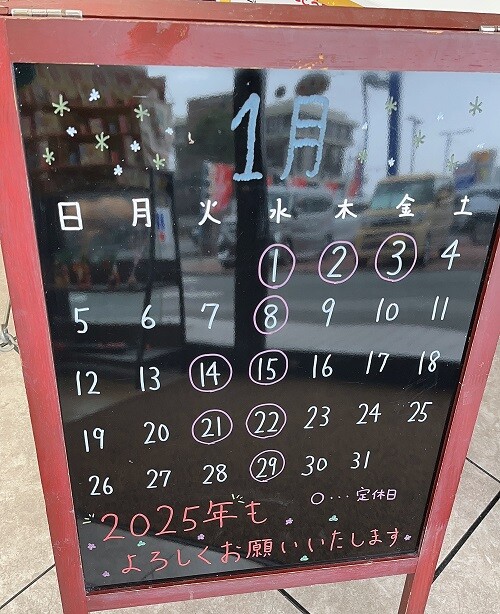 1月
日 月 火 水 木 金 土
1 2 3 4
5 6 7 8 9 10 11
12 13 14 15 16 17 18
19 20 21 22 23 24 25
26 27 28 29 30 31
○・・・定休日
2025年も
よろしくお願いいたします